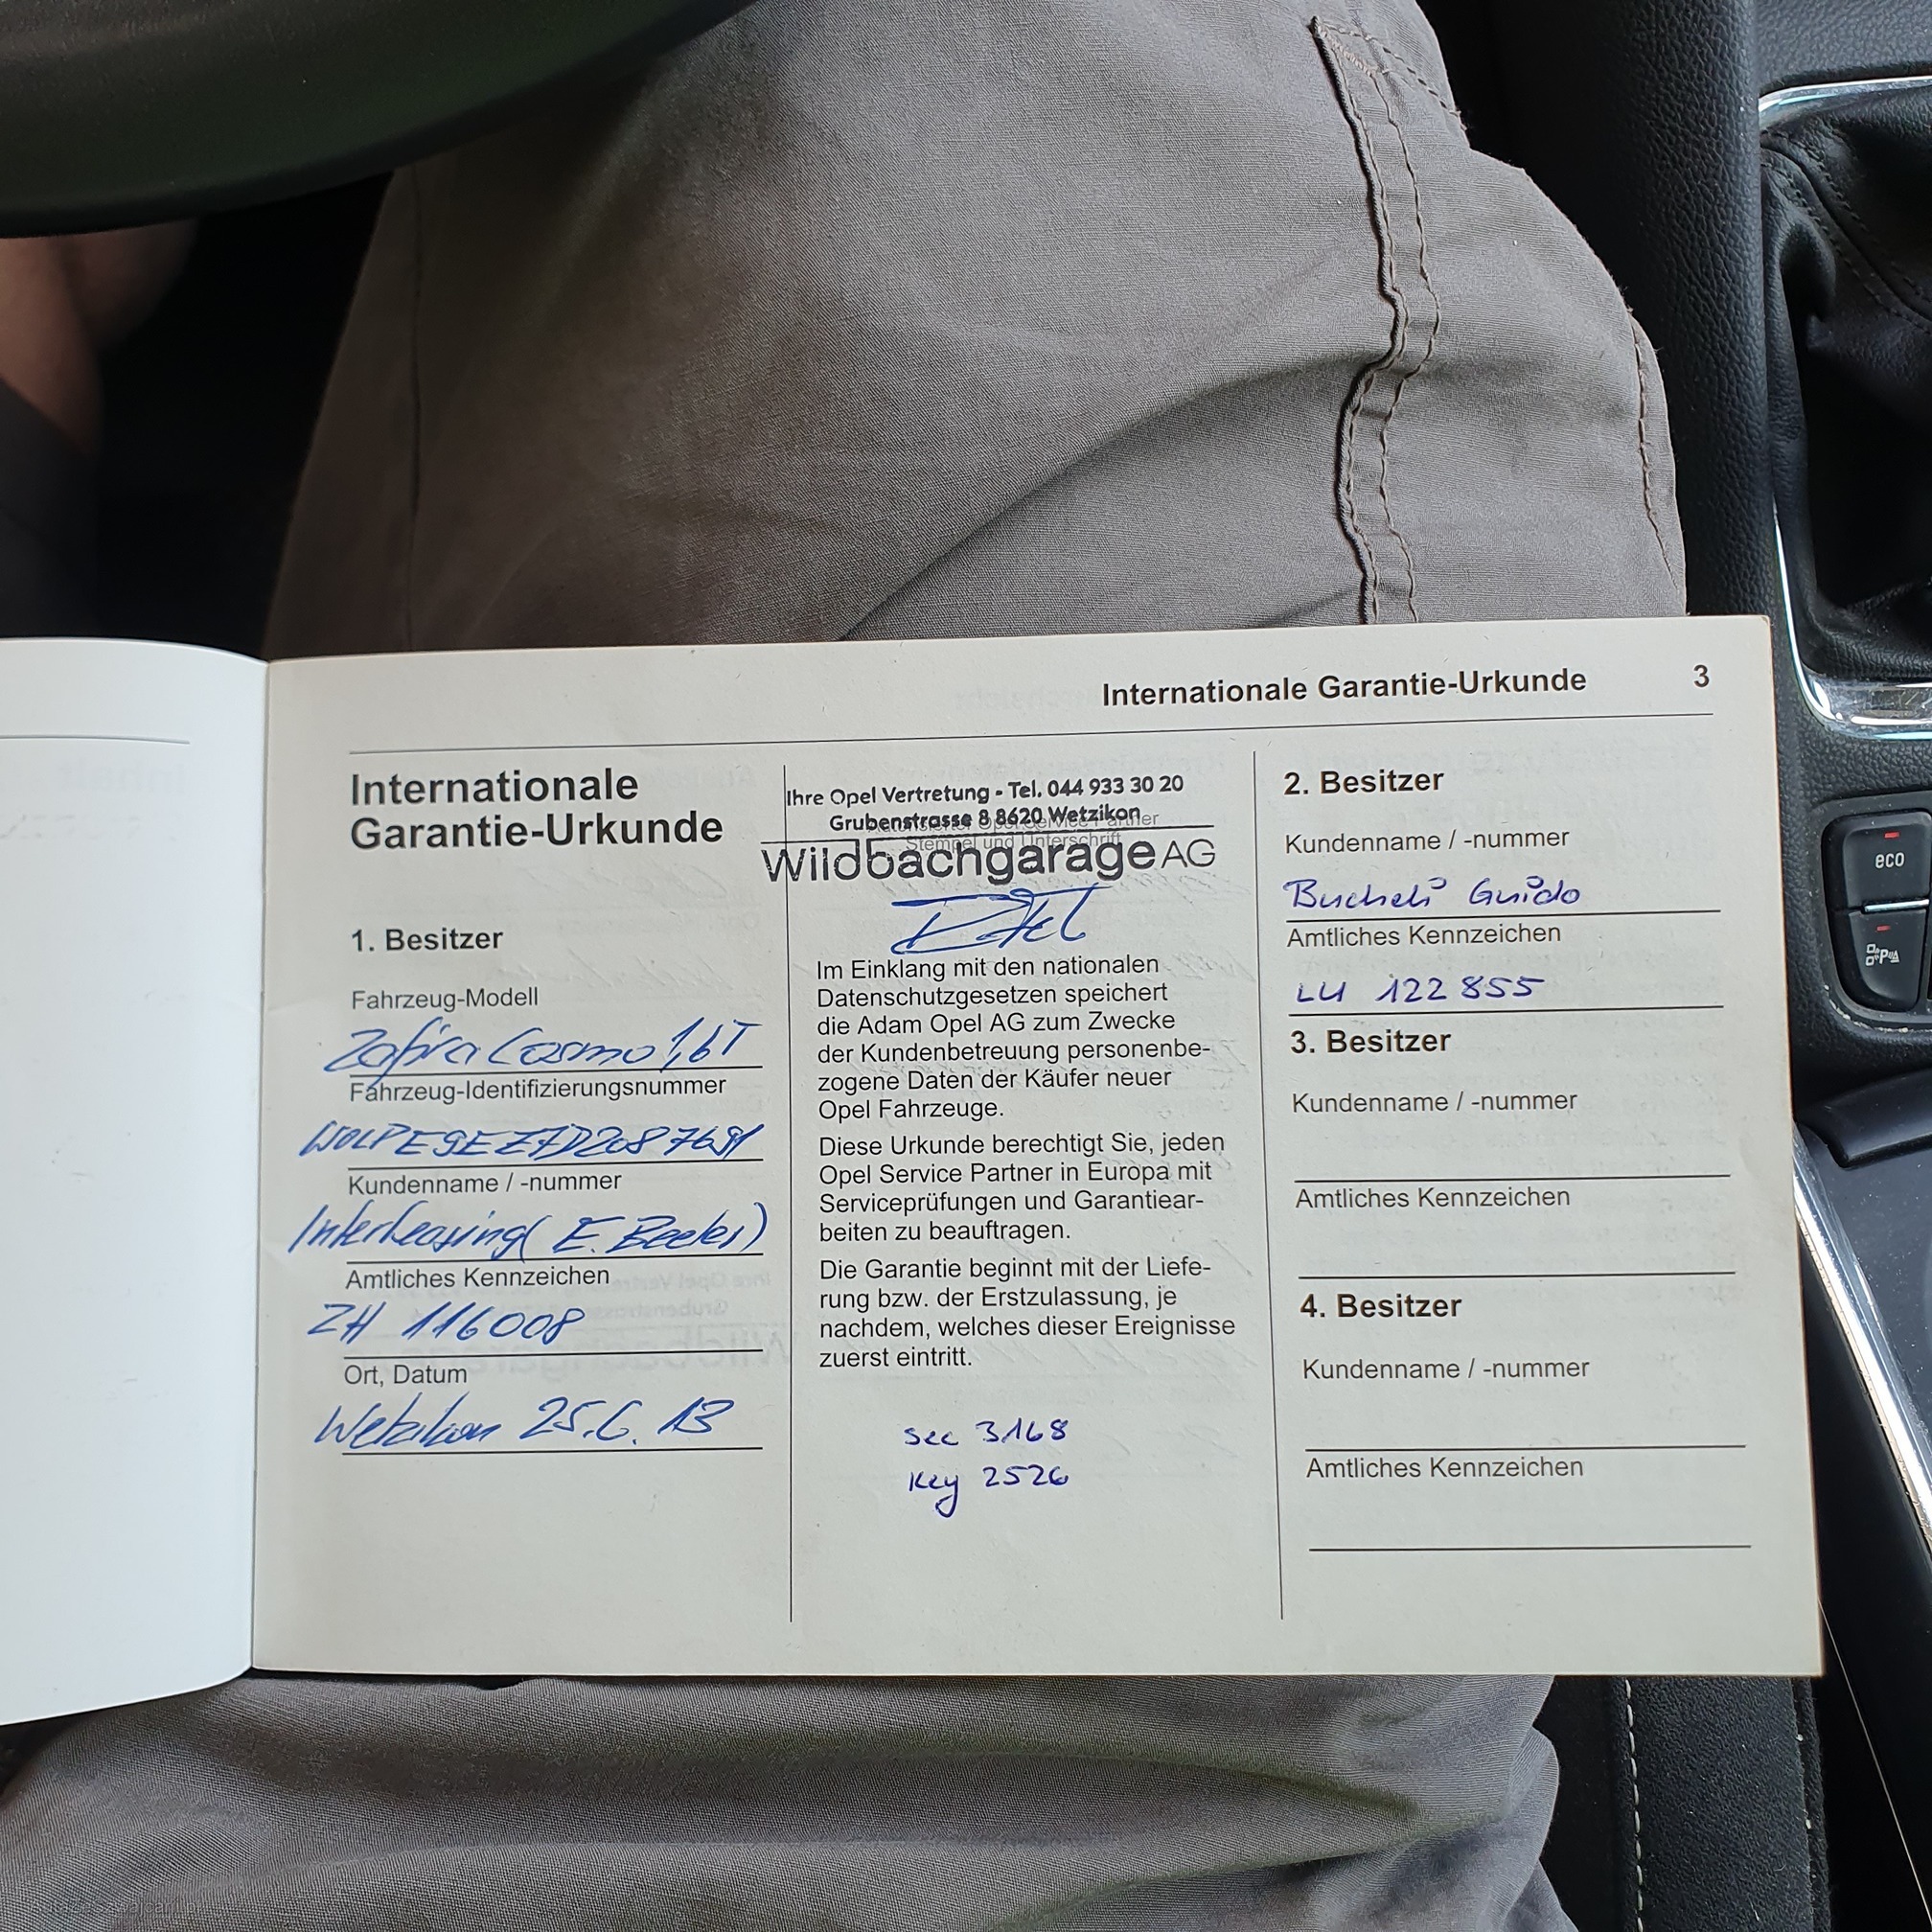 Internationale Garantie-Urkunde 3
Internationale
Garantie-Urkunde
1. Besitzer
Fahrzeug-Modell
Zafira Cosmo 1,6T
Fahrzeug-Identifizierungsnummer
W0LPE9EZ7D2087691
Kundenname / -nummer
Interleasing (E. Beeler)
Amtliches Kennzeichen
ZH 116008
Ort, Datum
Wetzikon 25.6.13
Ihre Opel Vertretung - Tel. 044 933 30 20
Grubenstrasse 8 8620 Wetzikon
Autorisierter Opel Service Partner
Stempel und Unterschrift
Wildbachgarage AG
Im Einklang mit den nationalen
Datenschutzgesetzen speichert
die Adam Opel AG zum Zwecke
der Kundenbetreuung personenbe-
zogene Daten der Käufer neuer
Opel Fahrzeuge.
Diese Urkunde berechtigt Sie, jeden
Opel Service Partner in Europa mit
Serviceprüfungen und Garantiear-
beiten zu beauftragen.
Die Garantie beginnt mit der Liefe-
rung bzw. der Erstzulassung, je
nachdem, welches dieser Ereignisse
zuerst eintritt.
Sec 3168
Key 2526
2. Besitzer
Kundenname / -nummer
Bucheli Guido
Amtliches Kennzeichen
LU 122 855
3. Besitzer
Kundenname / -nummer
Amtliches Kennzeichen
4. Besitzer
Kundenname / -nummer
Amtliches Kennzeichen
eco